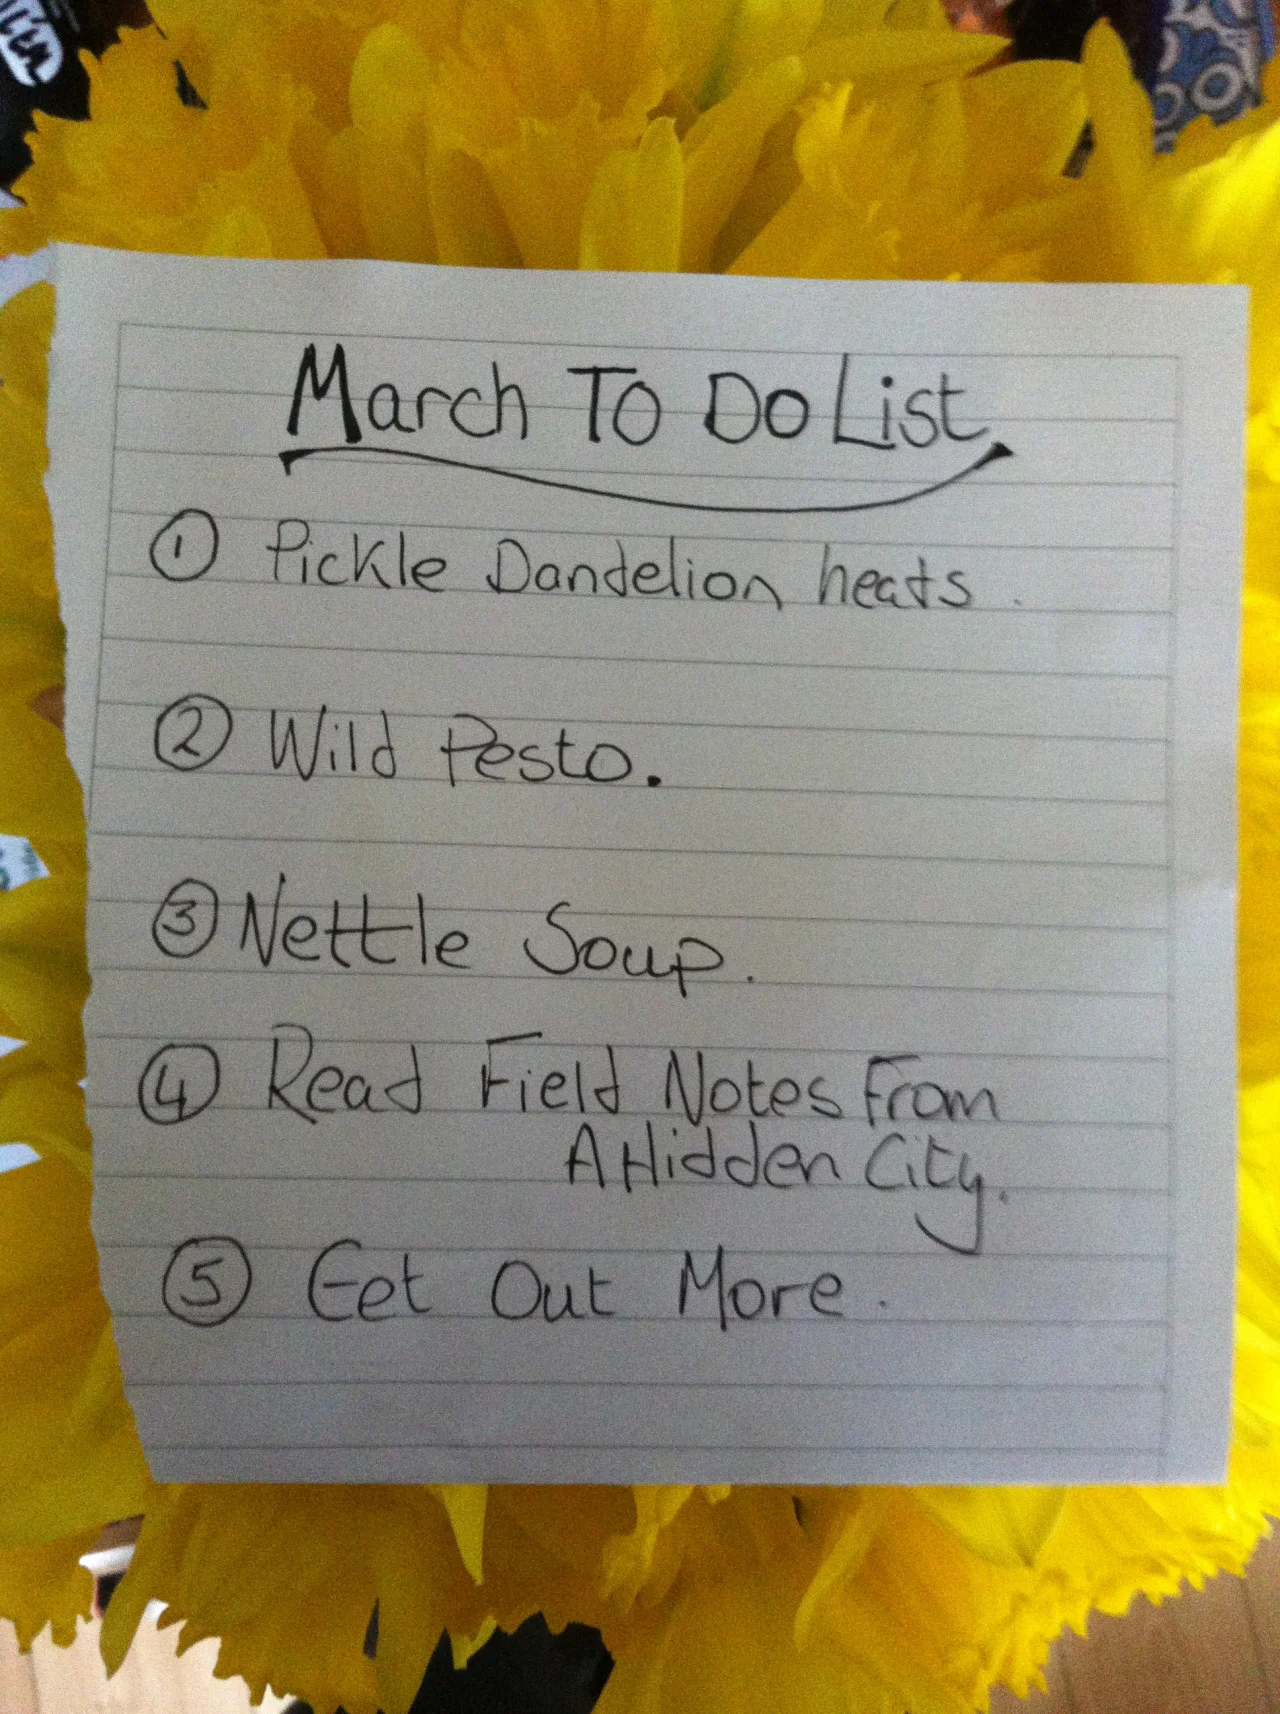 March To Do List
① Pickle Dandelion heads.
② Wild Pesto.
③ Nettle Soup.
④ Read Field Notes From
A Hidden City.
⑤ Get Out More.